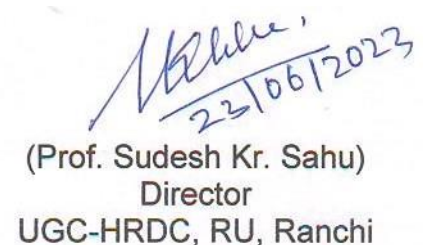 23/06/2023
(Prof. Sudesh Kr. Sahu)
Director
UGC-HRDC, RU, Ranchi